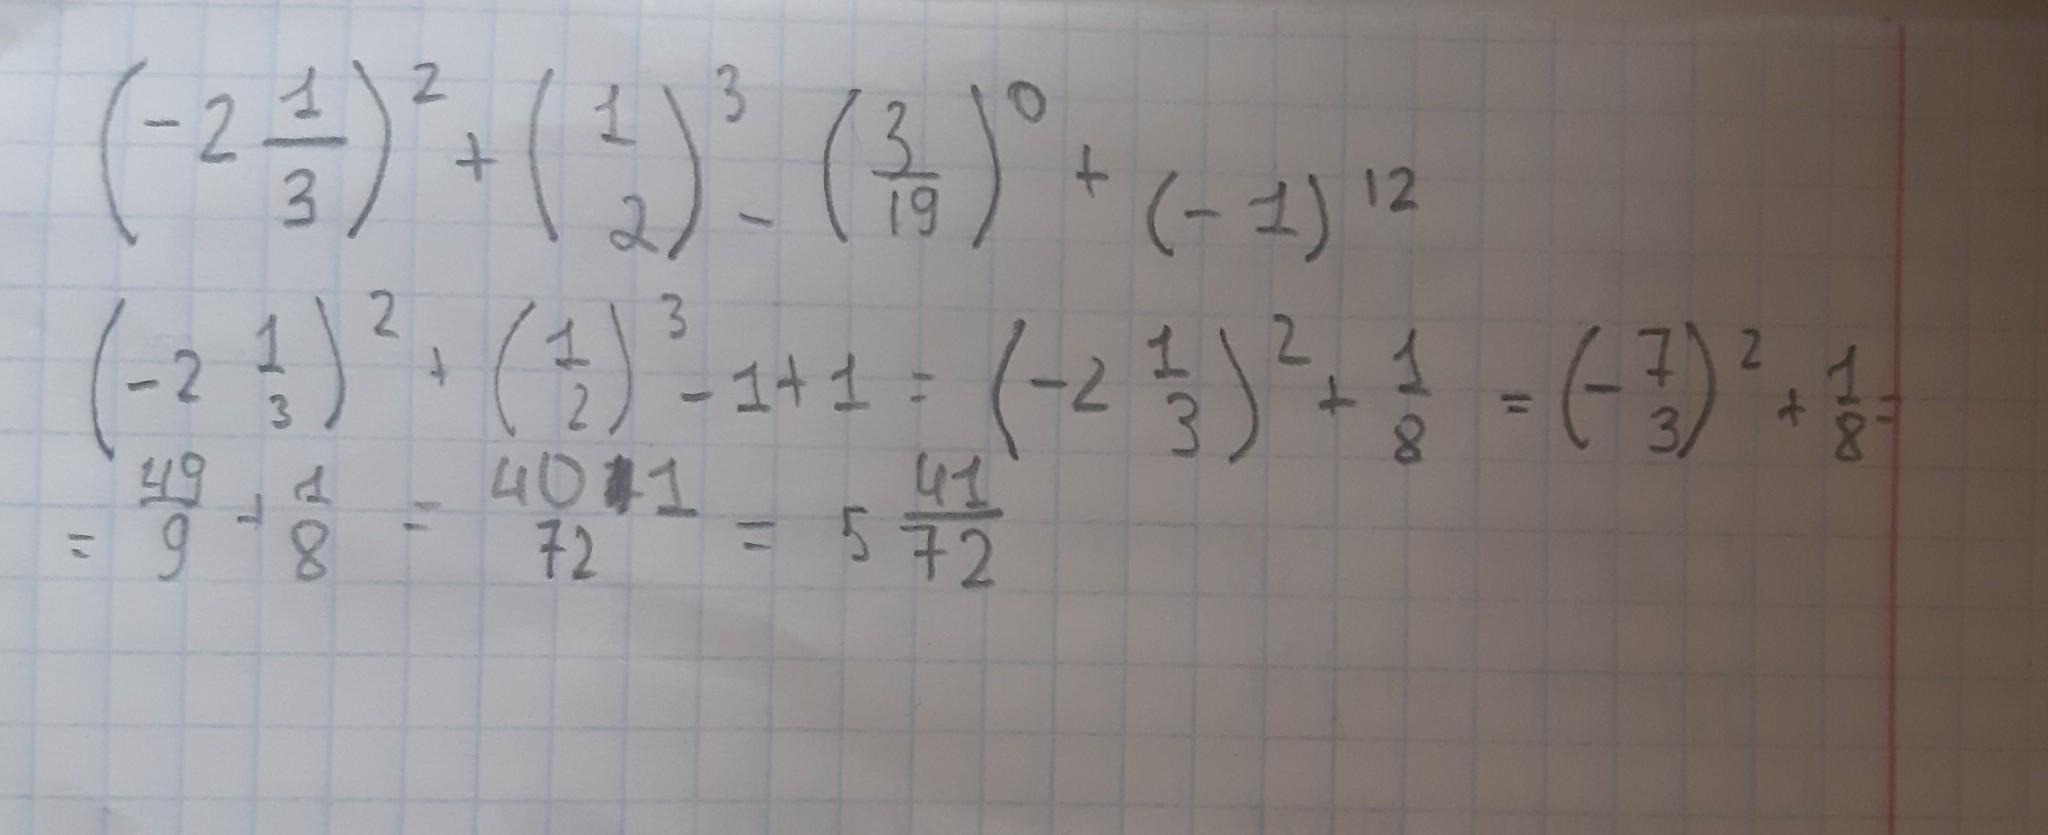 (-2 1/3)^2 + (1/2)^3 - (3/19)^0 + (-1)^12
(-2 1/3)^2 + (1/2)^3 - 1 + 1 = (-2 1/3)^2 + 1/8 = (-7/3)^2 + 1/8 =
= 49/9 + 1/8 = 401/72 = 5 41/72